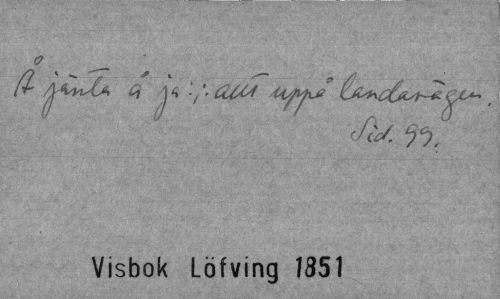 Å jänta å ja :,: allt uppå landavägen.
Sid. 99.
Visbok Löfving 1851